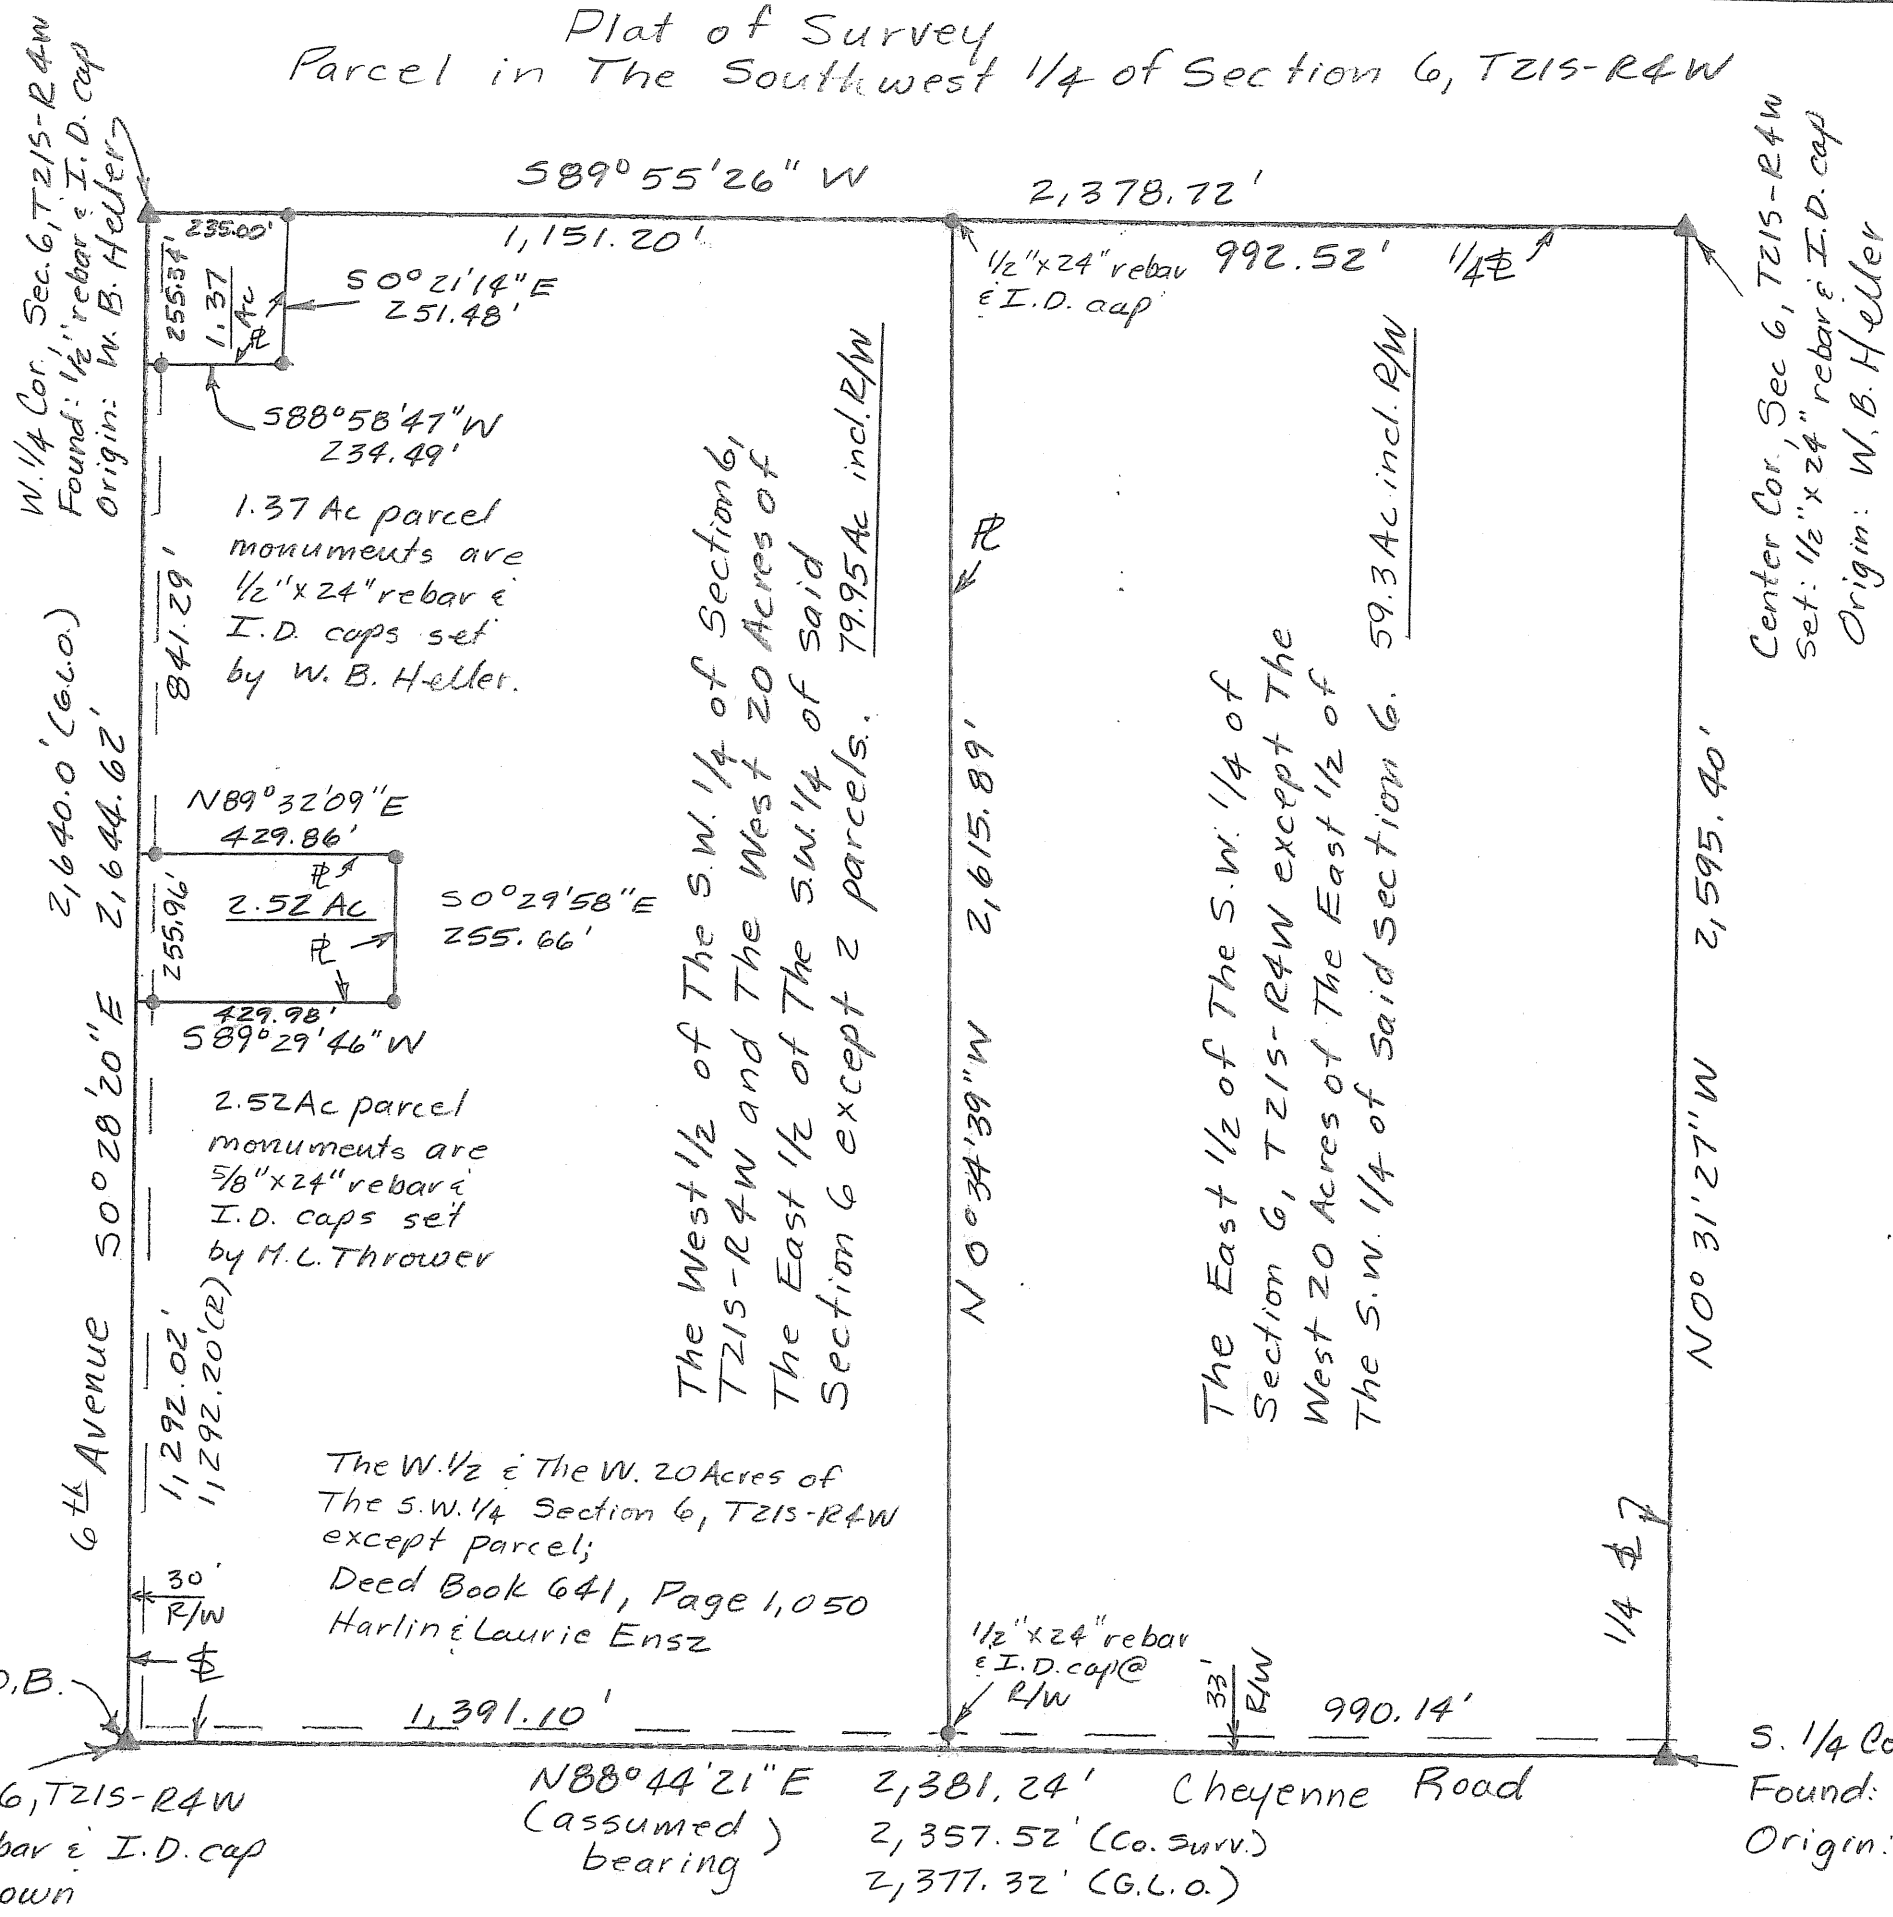 Plat of Survey
Parcel in The Southwest 1/4 of Section 6, T21S-R4W
W. 1/4 Cor, Sec. 6, T21S-R4W
Found: 1/2" rebar & I.D. cap
Origin: W. B. Heller
S89°55'26" W 2,378.72'
235.00'
1,151.20'
992.52'
1/4 ℄
1/2" x 24" rebar
& I.D. cap
Center Cor, Sec 6, T21S-R4W
Set: 1/2" x 24" rebar & I.D. cap
Origin: W. B. Heller
255.54'
1.37
Ac
℄
S0°21'14"E
251.48'
S88°58'47"W
234.49'
1.37 Ac parcel
monuments are
1/2" x 24" rebar &
I.D. caps set
by W. B. Heller.
841.29'
2,640.0' (G.L.O.)
6th Avenue S0°28'20"E 2,644.62'
N89°32'09"E
429.86'
℄
2.52 Ac
℄
255.96'
S0°29'58"E
255.66'
429.98'
S89°29'46"W
2.52 Ac parcel
monuments are
5/8" x 24" rebar &
I.D. caps set
by M.L. Thrower
1,292.02'
1,292.20'(R)
The West 1/2 of The S.W. 1/4 of Section 6,
T21S-R4W and The West 20 Acres of
The East 1/2 of The S.W. 1/4 of said
Section 6 except 2 parcels. 79.95 Ac incl. R/W
℄
N0°34'39"W 2,615.89'
The East 1/2 of The S.W. 1/4 of
Section 6, T21S-R4W except The
West 20 Acres of The East 1/2 of
The S.W. 1/4 of said section 6. 59.3 Ac incl. R/W
N0°31'27"W 2,595.40'
1/4 ℄
The W. 1/2 & The W. 20 Acres of
The S.W. 1/4 Section 6, T21S-R4W
except parcel;
Deed Book 641, Page 1,050
Harlin & Laurie Ensz
30'
R/W
℄
O.B.
1,391.10'
1/2" x 24" rebar
& I.D. cap @
R/W
33'
R/W
990.14'
6, T21S-R4W
bar & I.D. cap
own
N88°44'21"E 2,381.24' Cheyenne Road
(assumed bearing)
2,357.52' (Co. Surv.)
2,377.32' (G.L.O.)
S. 1/4 Co
Found:
Origin: